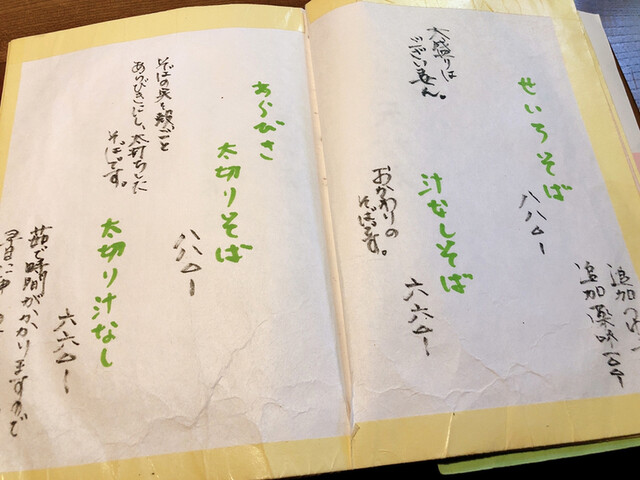 せいろそば
八八〇ー
大盛りは
ございません。
汁なしそば
六六〇ー
おかわりの
そばです。
追加
追加薬味
あらびき
太切りそば
八八〇ー
そばの実を殻ごと
あらびきにし、太打ちした
そばです。
太切り汁なし
六六〇ー
茹で時間がかかりますので